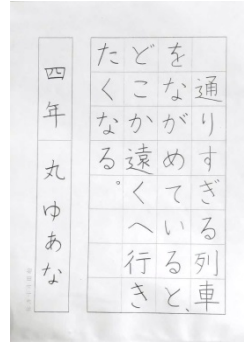 通りすぎる列車
をながめていると、
どこか遠くへ行き
たくなる。
四年 丸ゆあな